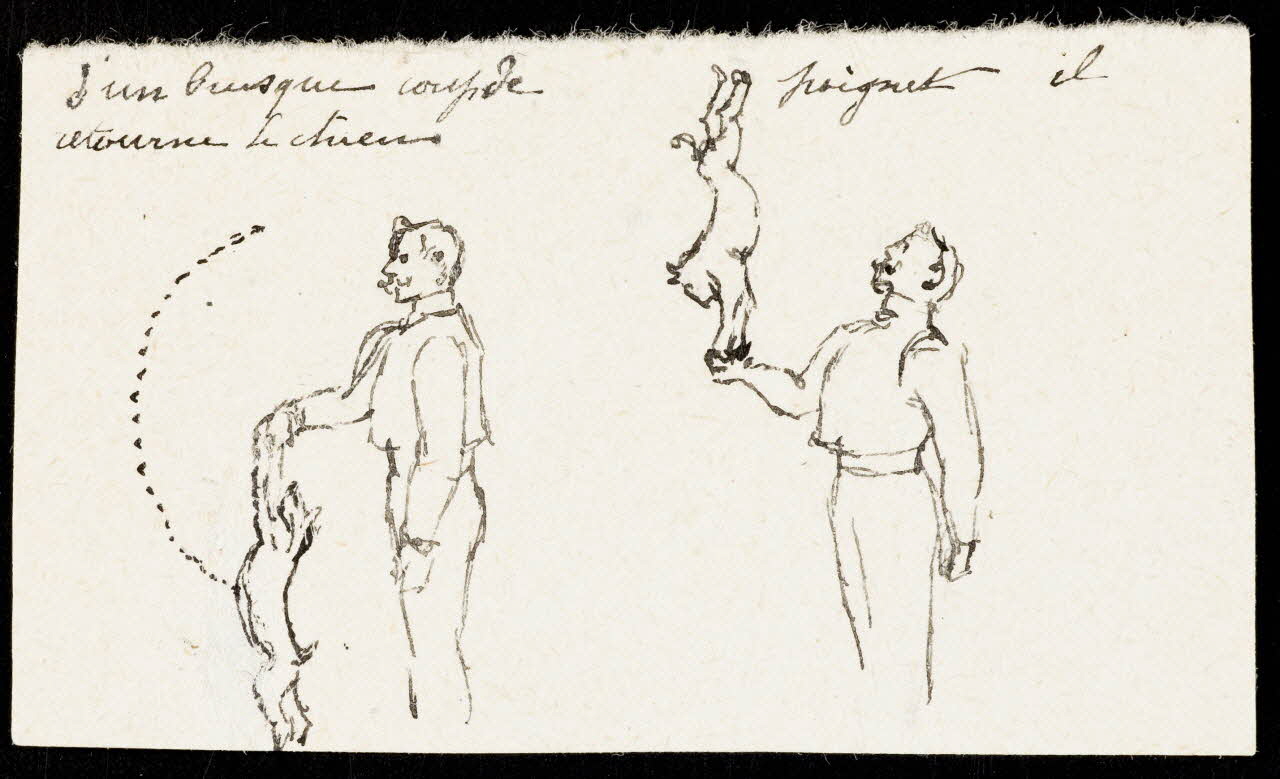 d'un brusque coup de poignet il
retourne le chien